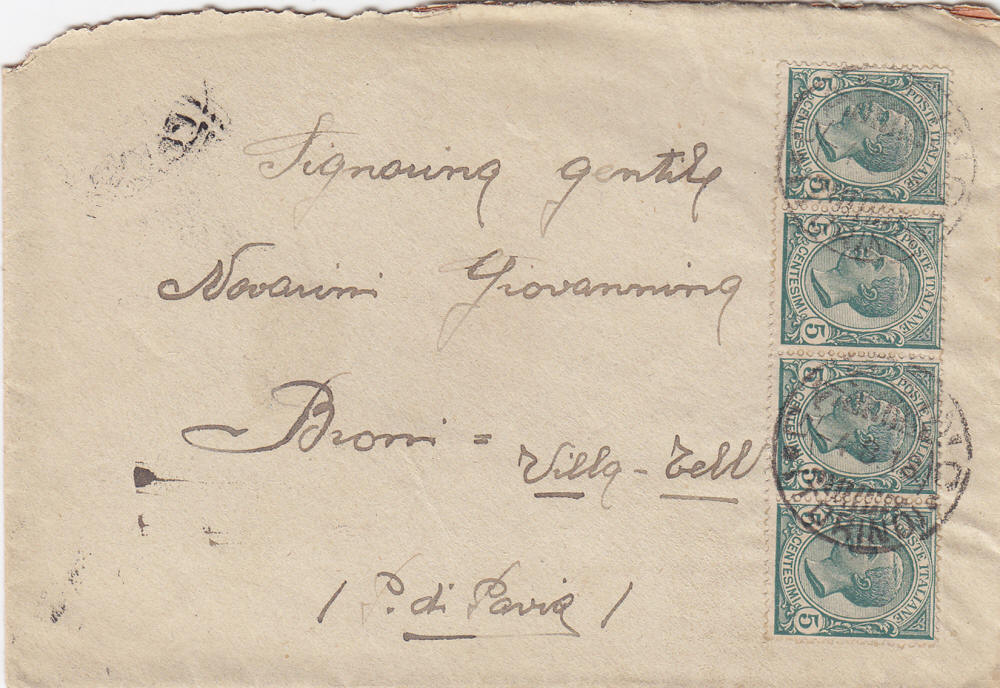 Signorina gentile
Novarini Giovannina
Broni = Villa - Tell
/ P. di Pavia /
POSTE ITALIANE
CENTESIMI
5 5
POSTE ITALIANE
CENTESIMI
5 5
POSTE ITALIANE
CENTESIMI
5 5
POSTE ITALIANE
CENTESIMI
5 5